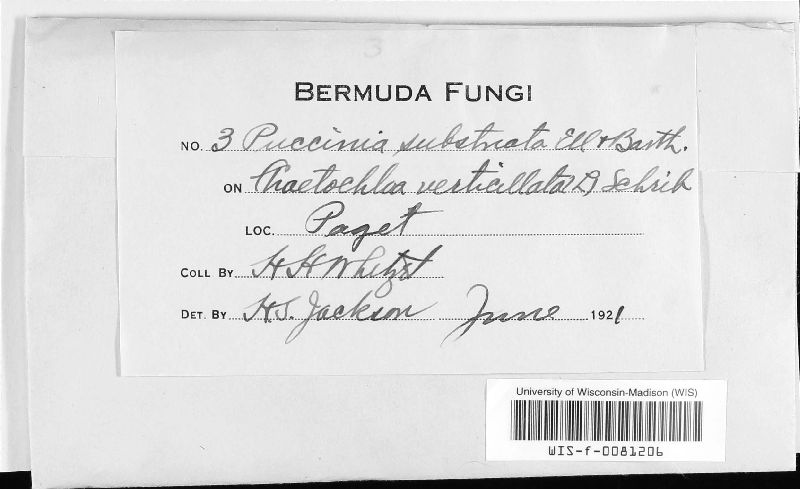 3
BERMUDA FUNGI
NO. 3 Puccinia substriata Ell & Barth.
ON Chaetochloa verticillata (L) Schrib
LOC. Paget
COLL BY H H Whetzel
DET. BY H.S. Jackson June 1921
University of Wisconsin-Madison (WIS)
WIS-f-0081206